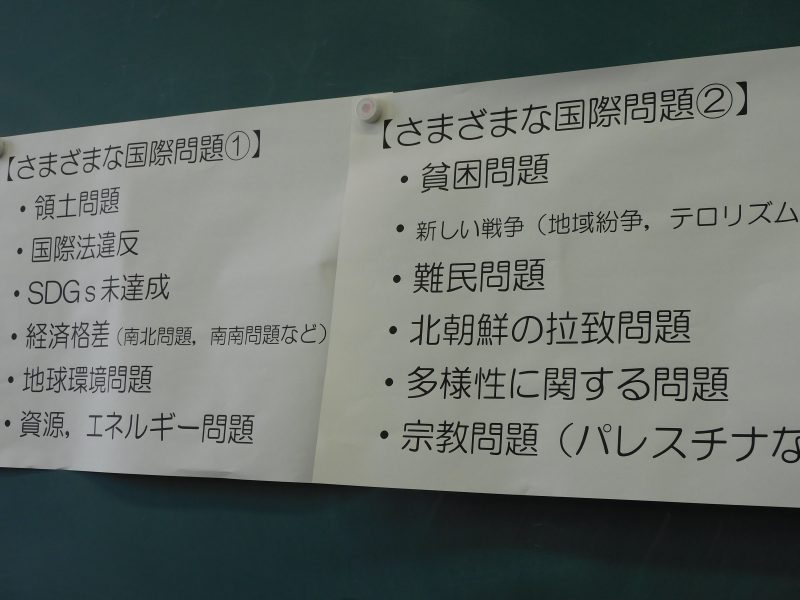 【さまざまな国際問題①】
・領土問題
・国際法違反
・SDGs未達成
・経済格差（南北問題，南南問題など）
・地球環境問題
・資源，エネルギー問題
【さまざまな国際問題②】
・貧困問題
・新しい戦争（地域紛争，テロリズム
・難民問題
・北朝鮮の拉致問題
・多様性に関する問題
・宗教問題（パレスチナな